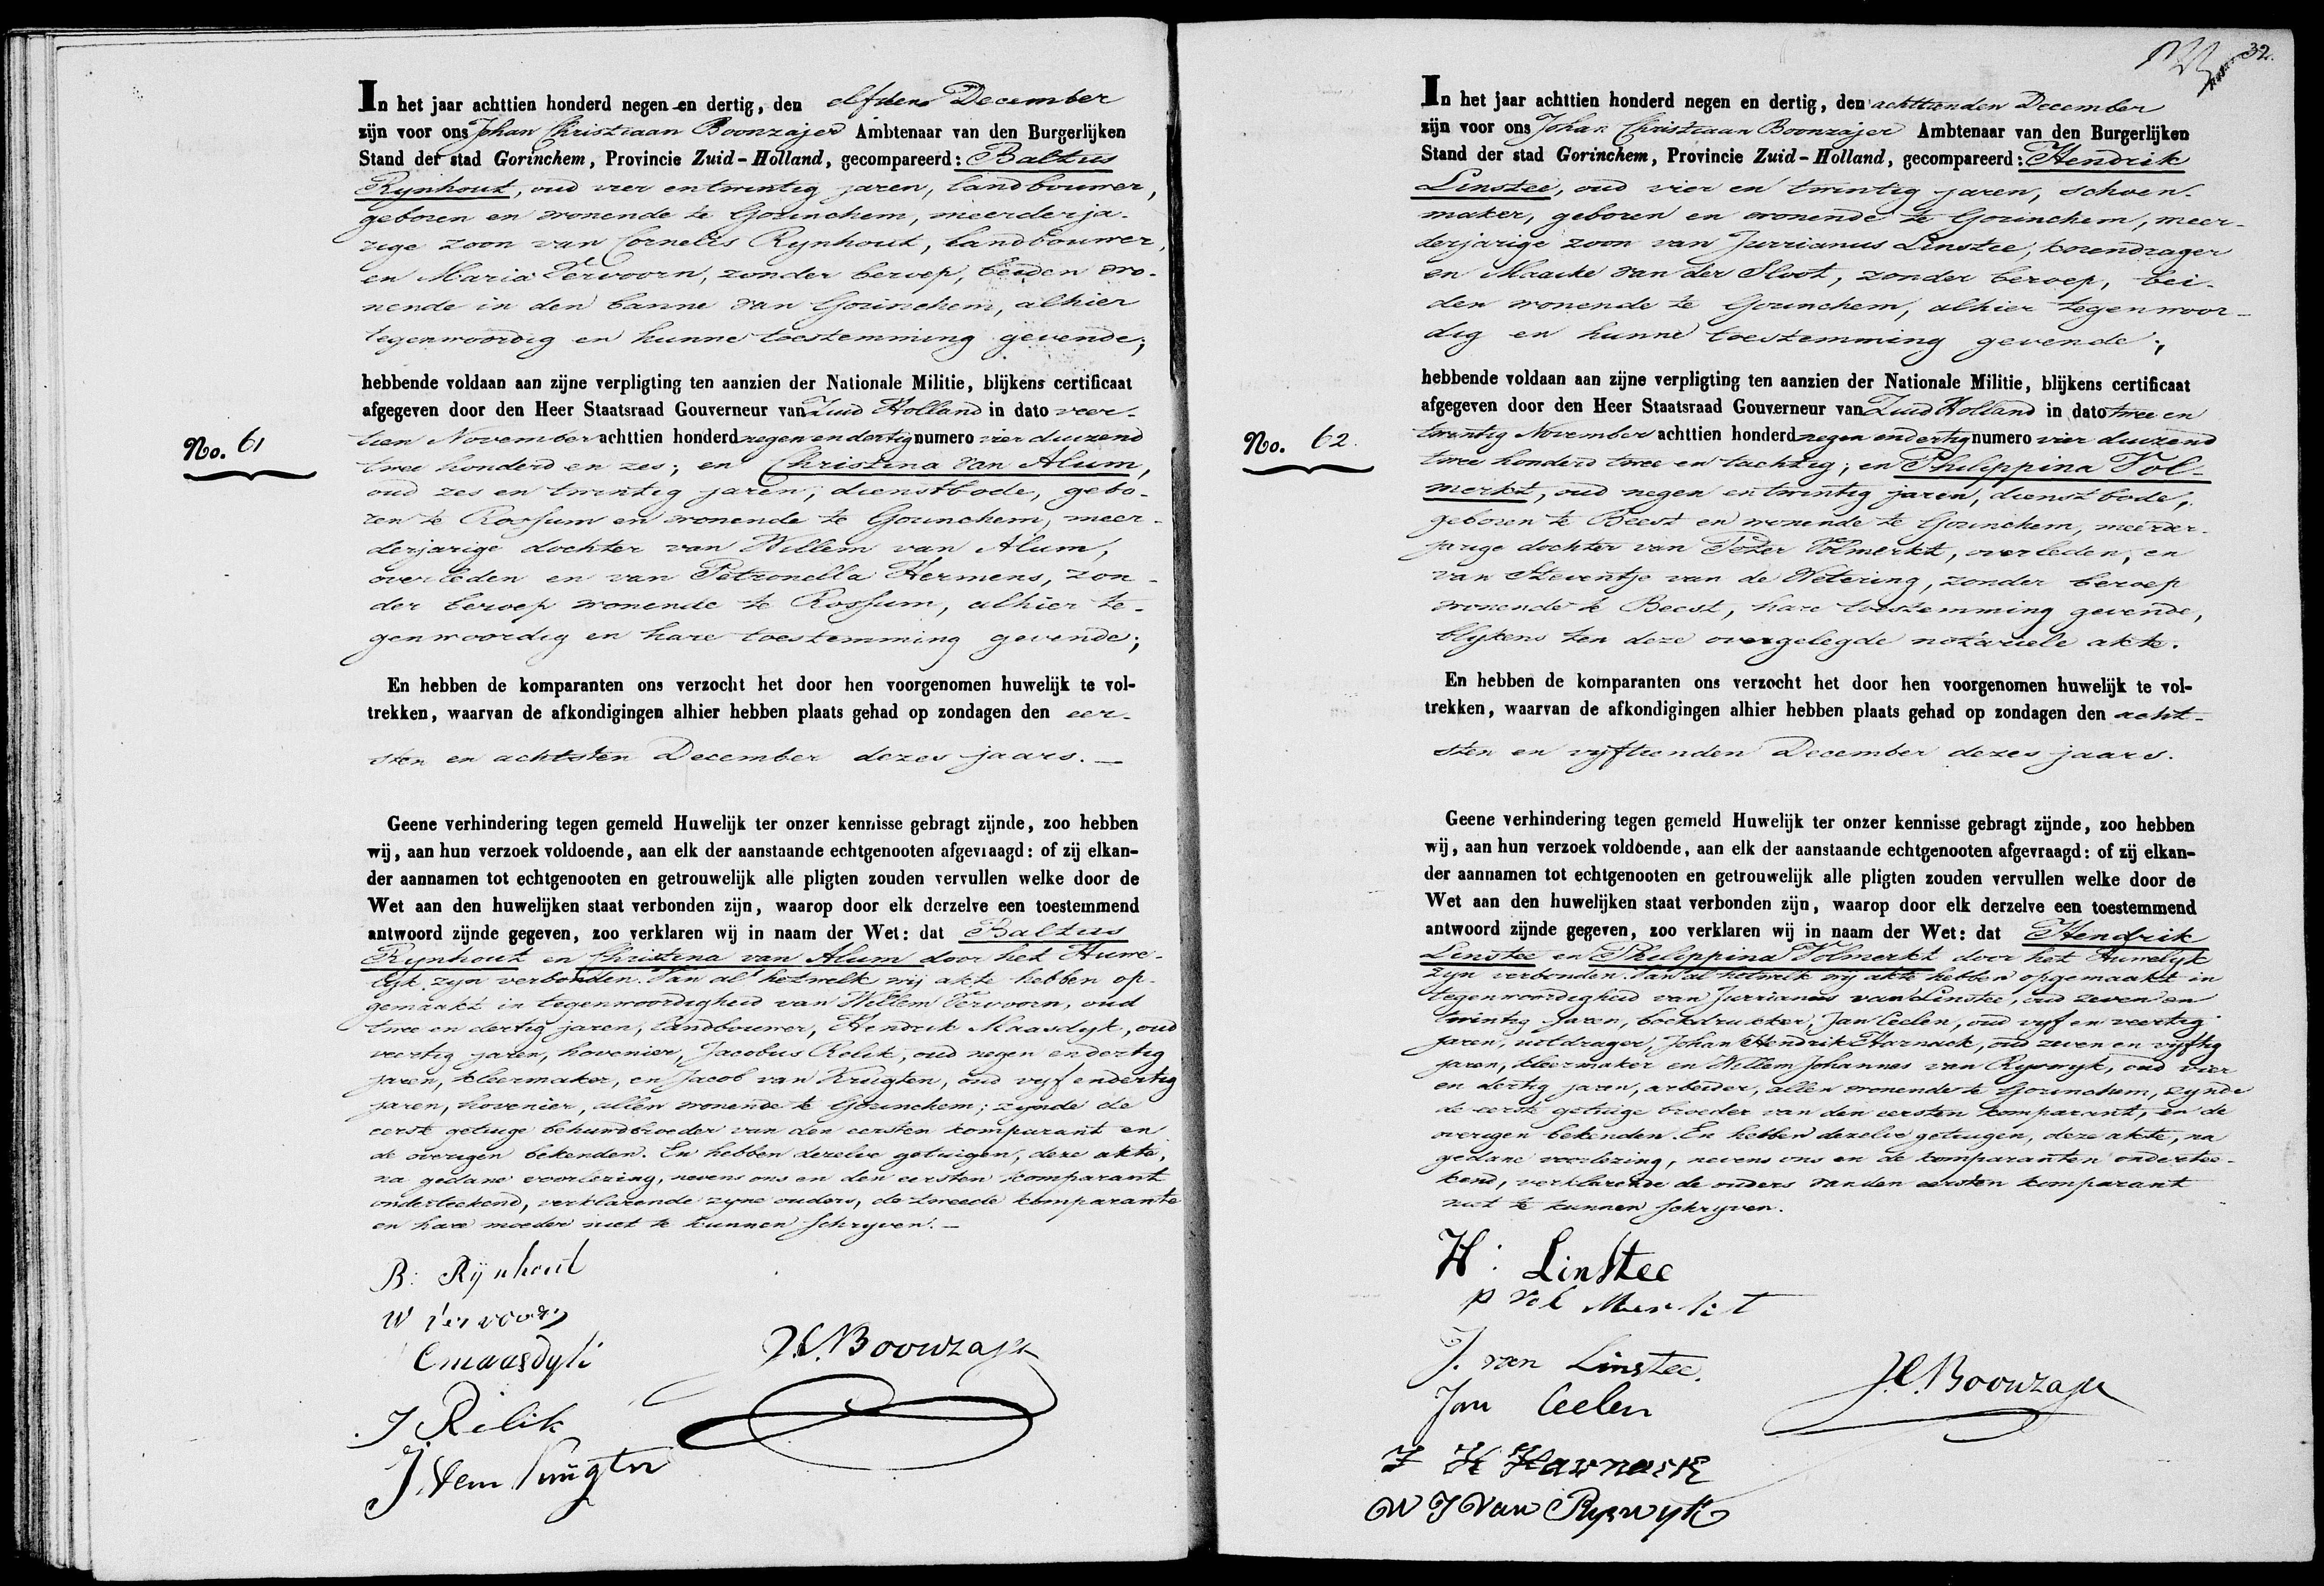 In het jaar achttien honderd negen en dertig, den elfden December
zijn voor ons Johan Christiaan Boonzajer Ambtenaar van den Burgerlijken
Stand der stad Gorinchem, Provincie Zuid-Holland, gecompareerd: Baltus
Rynhout, oud vier en twintig jaren, landbouwer,
geboren en wonende te Gorinchem, meerderja-
rige zoon van Cornelis Rynhout, landbouwer,
en Maria Vervoorn, zonder beroep, beiden wo-
nende in den banne van Gorinchem, alhier
tegenwoordig en hunne toestemming gevende;
hebbende voldaan aan zijne verpligting ten aanzien der Nationale Militie, blijkens certificaat
afgegeven door den Heer Staatsraad Gouverneur van Zuid Holland in dato veer-
No. 61
tien November achttien honderd negen en dertig numero vier duizend
twee honderd en zes; en Christina van Alum,
oud zes en twintig jaren, dienstbode, gebo-
ren te Rossum en wonende te Gorinchem, meer-
derjarige dochter van Willem van Alum,
overleden en van Petronella Hermens, zon-
der beroep wonende te Rossum, alhier te-
genwoordig en hare toestemming gevende;
En hebben de komparanten ons verzocht het door hen voorgenomen huwelijk te vol-
trekken, waarvan de afkondigingen alhier hebben plaats gehad op zondagen den eer-
sten en achtsten December dezes jaars.
Geene verhindering tegen gemeld Huwelijk ter onzer kennisse gebragt zijnde, zoo hebben
wij, aan hun verzoek voldoende, aan elk der aanstaande echtgenooten afgevraagd: of zij elkan-
der aannamen tot echtgenooten en getrouwelijk alle pligten zouden vervullen welke door de
Wet aan den huwelijken staat verbonden zijn, waarop door elk derzelve een toestemmend
antwoord zijnde gegeven, zoo verklaren wij in naam der Wet: dat Baltus
Rynhout en Christina van Alum door het Huwe-
lyk zyn verbonden. Van al hetwelk wij akte hebben op-
gemaakt in tegenwoordigheid van Willem Vervoorn, oud
twee en dertig jaren, landbouwer, Hendrik Maasdyk, oud
veertig jaren, hovenier, Jacobus Relik, oud negen en dertig
jaren, kleermaker, en Jacob van Krugten, oud vyf en dertig
jaren, hovenier, allen wonende te Gorinchem; zynde de
eerste getuige behuwdbroeder van den eersten komparant en
de overigen bekenden. En hebben dezelve getuigen, deze akte,
na gedane voorlezing, nevens ons en den eersten komparant
onderteekend, verklarende zyne ouders, de tweede komparante
en hare moeder niet te kunnen schryven.
B: Rijnhout
W Vervoorn
Cmaasdyk
J.C. Boonzajer
J Relik
32.
In het jaar achttien honderd negen en dertig, den achttienden December
zijn voor ons Johan Christiaan Boonzajer Ambtenaar van den Burgerlijken
Stand der stad Gorinchem, Provincie Zuid-Holland, gecompareerd: Hendrik
Linstee, oud vier en twintig jaren, schoen-
maker, geboren en wonende te Gorinchem, meer-
derjarige zoon van Jurrianus Linstee, korendrager
en Maaike van der Sloot, zonder beroep, bei-
den wonende te Gorinchem, alhier tegenwoor-
dig en hunne toestemming gevende;
hebbende voldaan aan zijne verpligting ten aanzien der Nationale Militie, blijkens certificaat
afgegeven door den Heer Staatsraad Gouverneur van Zuid Holland in dato twee en
No. 62.
twintig November achttien honderd negen en dertig numero vier duizend
twee honderd twee en tachtig; en Philippina Vol-
merkt, oud negen en twintig jaren, dienstbode,
geboren te Beest en wonende te Gorinchem, meerder-
jarige dochter van Peter Volmerkt, overleden, en
van Steventje van de Wetering, zonder beroep
wonende te Beest, hare toestemming gevende,
blykens ten deze overgelegde notariele akte.
En hebben de komparanten ons verzocht het door hen voorgenomen huwelijk te vol-
trekken, waarvan de afkondigingen alhier hebben plaats gehad op zondagen den acht-
sten en vyftienden December dezes jaars.
Geene verhindering tegen gemeld Huwelijk ter onzer kennisse gebragt zijnde, zoo hebben
wij, aan hun verzoek voldoende, aan elk der aanstaande echtgenooten afgevraagd: of zij elkan-
der aannamen tot echtgenooten en getrouwelijk alle pligten zouden vervullen welke door de
Wet aan den huwelijken staat verbonden zijn, waarop door elk derzelve een toestemmend
antwoord zijnde gegeven, zoo verklaren wij in naam der Wet: dat Hendrik
Linstee en Philippina Volmerkt door het Huwelyk
zyn verbonden. Van al hetwelk wy akte hebben opgemaakt in
tegenwoordigheid van Jurrianus van Linstee, oud zeven en
twintig jaren, boekdrukker, Jan Ceelen, oud vyf en veertig
jaren, uitdrager, Johan Hendrik Harnack, oud zeven en vyftig
jaren, kleermaker en Willem Johannes van Ryswyk, oud vier
en dertig jaren, arbeider, allen wonende te Gorinchem, zynde
de eerste getuige broeder van den eersten komparant, en de
overigen bekenden. En hebben dezelve getuigen, deze akte, na
gedane voorlezing, nevens ons en de komparanten onderteе-
kend, verklarende de ouders van den eersten komparant
niet te kunnen schryven.
H: Linstee
p vol Merkt
J. van Linstee.
Jan Ceelen
J.C. Boonzajer
J H Harnack
W J Van Ryswyk